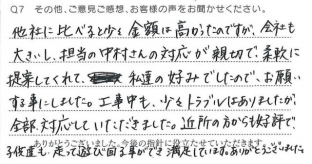 Q7 その他、ご意見ご感想、お客様の声をお聞かせください。
他社に比べると少々金額は高かったのですが、会社も
大きいし、担当の中村さんの対応が親切で、柔軟に
提案してくれて、私達の好みでしたので、お願い
する事にしました。工事中も、少々トラブルはありましたが、
全部対応していただきました。近所の方からも好評で
ありがとうございました。今後の指針に役立たせていただきます。
子供達も、走って遊び回る事ができ満足しています。ありがとうございました